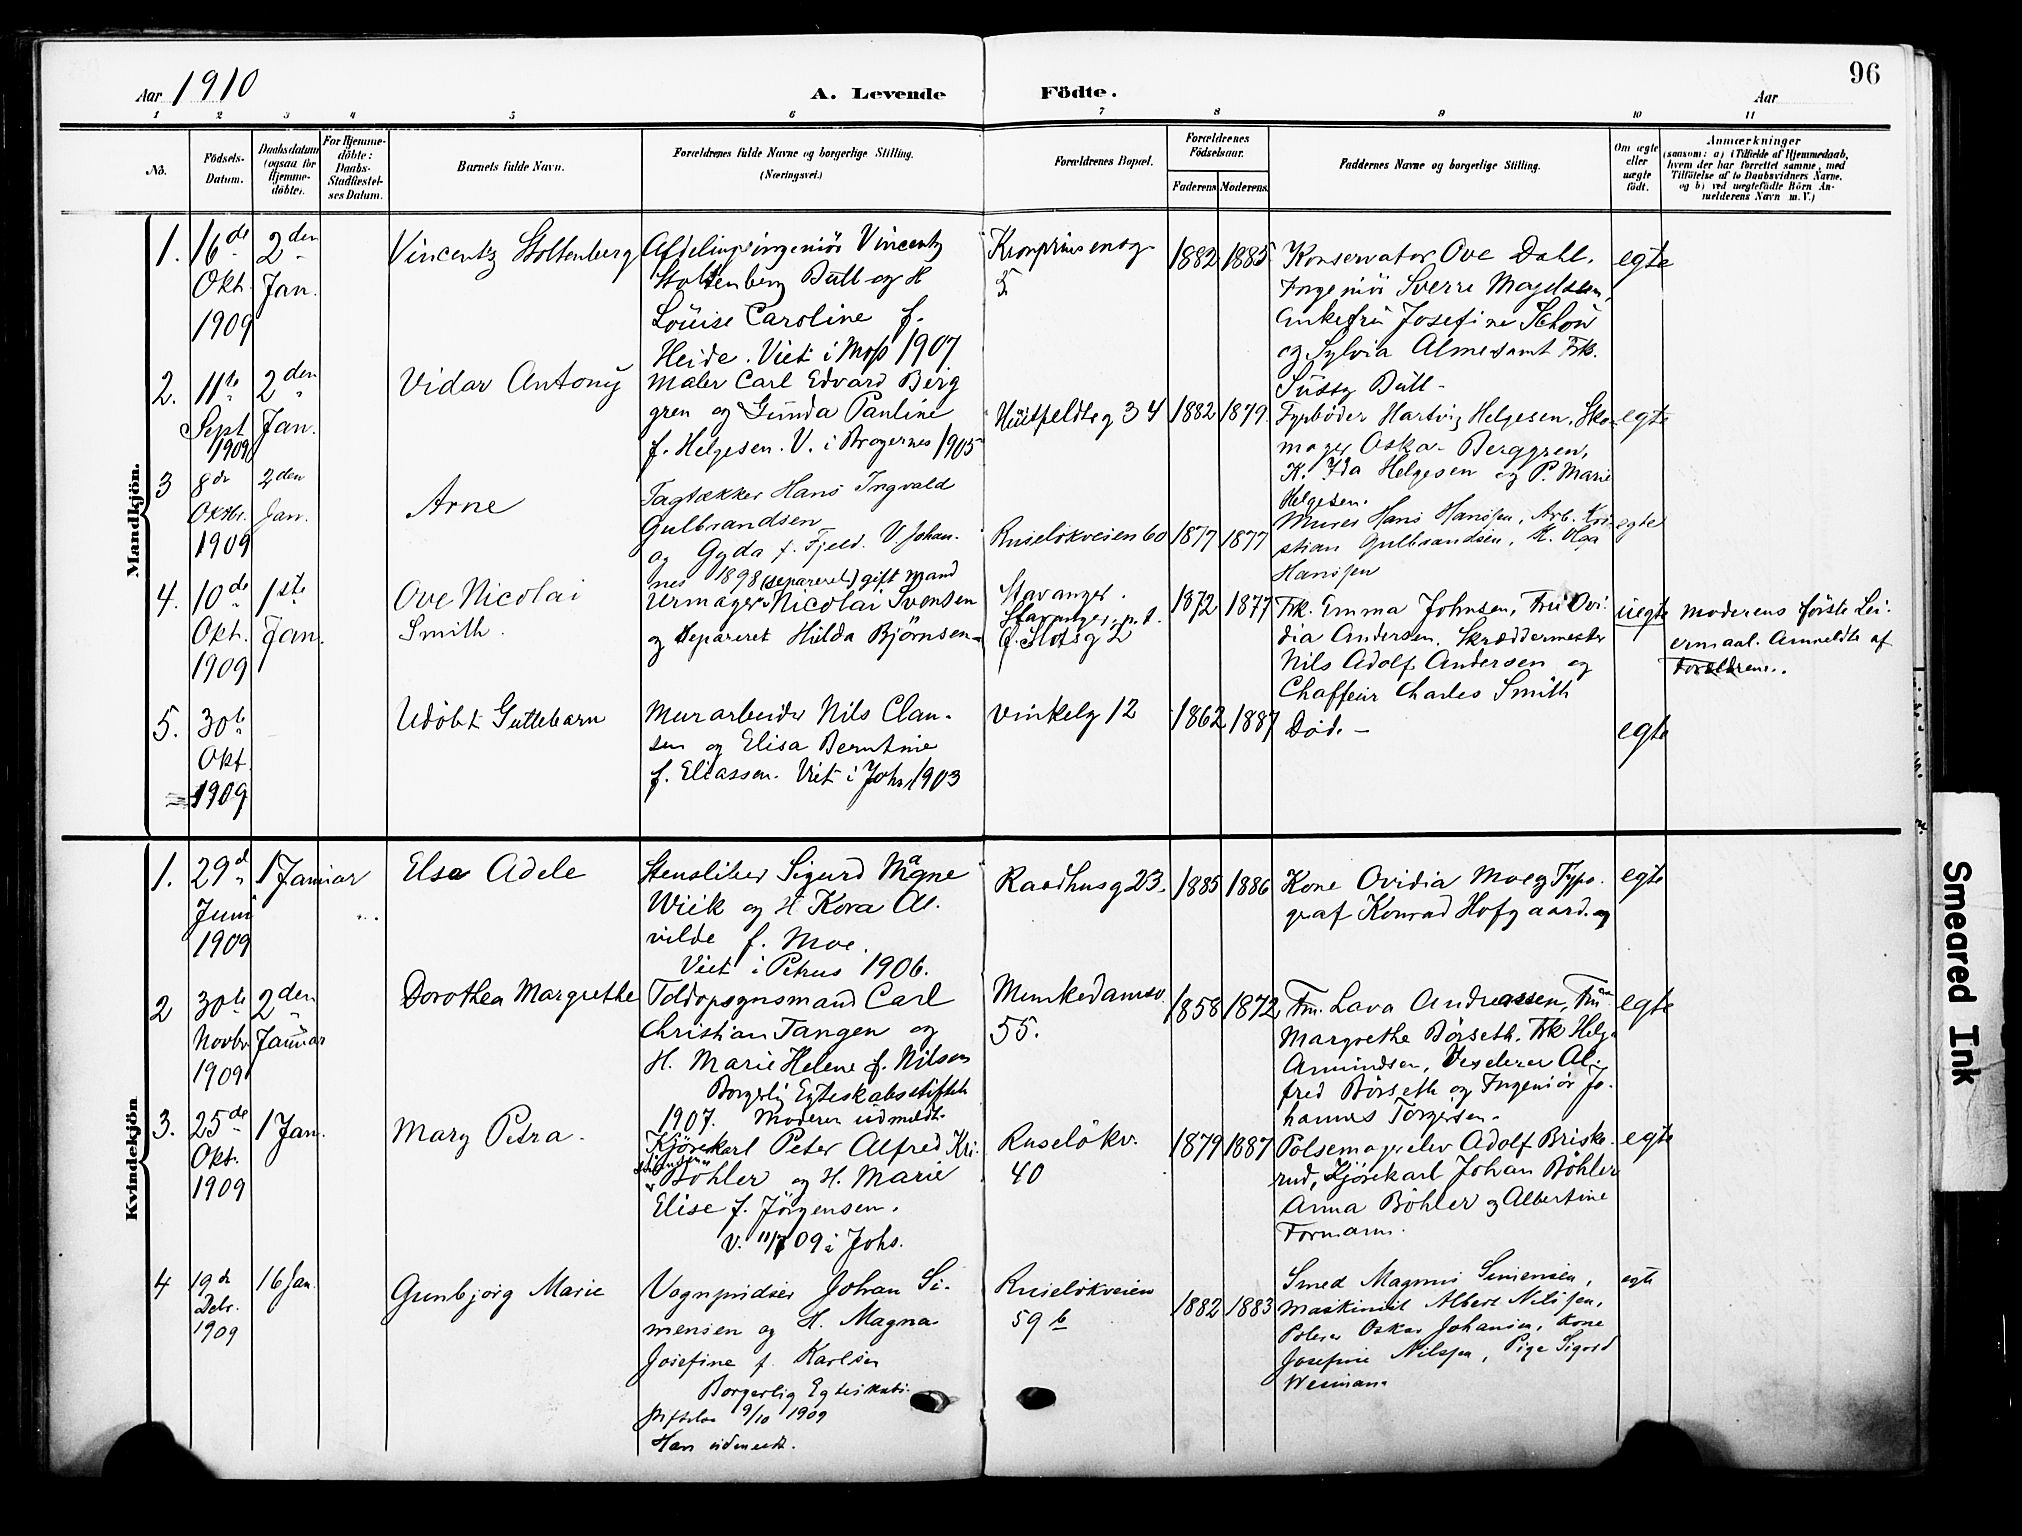 96
Aar 1910
A. Levende Födte.
Aar
1 2 3 4 5 6 7 8 9 10 11
No.
Födsels-Datum.
Daabsdatum (ogsaa for Hjemme-döbte).
For Hjemme-döbte: Daabs-Stadfæstel-ses Datum.
Barnets fulde Navn.
Forældrenes fulde Navne og borgerlige Stilling.
(Næringsvei.)
Forældrenes Bopæl.
Forældrenes Födselsaar.
Faderens. Moderens.
Faddernes Navne og borgerlige Stilling.
Om ægte eller uægte födt.
Anmærkninger
(saasom: a) i Tilfælde af Hjemmedaab,
hvem der har forrettet samme, med
Tilföielse af to Daabsvidners Navne,
og b) ved uægtefödte Börn An-
melderens Navn m.V.)
Mandkjön.
1. 16de Okt. 1909
2den Jan.
Vincentz Stoltenberg
Afdelingsingeniör Vincentz
Stoltenberg Bull og H
Louise Caroline f.
Heide. Viet i Moss 1907
Kronprinsensg.
5.
1882 1885
Konservator Ove Dahl,
Ingeniör Sverre Magelssen,
Enkefru Josefine Schou
og Sylvia Alme samt Frk.
Sussy Bull -
egte
2. 11te Sept. 1909
2den Jan.
Vidar Antony
Maler Carl Edvard Berg
gren og Gunda Pauline
f. Helgesen. V. i Bragernes 1905
Huitfeldtsg 34
1882 1879.
Fyrböder Hartvig Helgesen. Sko-
mager Oskar Berggren,
K. Ida Helgesen og P. Marie
Helgesen.
egte
3 8de Oktbr. 1909
2den Jan.
Arne
Tagtækker Hans Ingvald
Gulbrandsen
og Gyda f. Fjeld. V. Johan-
nes 1898
Ruselökveien 60
1877 1877
Murer Hans Hanssen, Arb. Kri-
stian Gulbrandsen, K. Olga
Hanssen
egte
4. 10de Okt. 1909
1ste Jan.
Ove Nicolai
Smith.
(separeret) gift mand
Urmager Nicolai Svensen
og separeret Hulda Bjørnsen
Stavanger.
Stavanger, p.t.
Slotsg 2
1872 1877
Frk. Emma Johnsen, Fru Ovi-
dia Andersen. Skræddermester
Nils Adolf Andersen og
Chaffeur Charles Smith
uegte
Moderens förste Lei-
ermaal. Anmeldte af
Forældrene.
5. 30te Okt. 1909
Udöbt Guttebarn
Murarbeider Nils Clau-
sen og Elisa Berntine
f. Eliassen. Viet i Johs 1903
Vinkelg 12
1862 1887
Död. -
egte
Kvindekjön
1. 29de Juni 1909
1 Januar
Else Adele
Stensliber Sigurd Magne
Wiik og H Kora Al-
vilde f. Moe.
Viet i Petrus 1906.
Raadhusg 23.
1885 1886
Kone Ovidia Moe og Typo-
graf Konrad Hofgaard. og
egte
2 30te Novbr 1909
2den Januar
Dorothea Margrethe
Toldopsynsmand Carl
Christian Tangen og
H. Marie Helene f. Nilsen
Borgerlig Egteskabsstiftelse
1907. Moderen udmeldt.
Munkedamsv.
55.
1858 1872
Fru. Lava Andreassen, Fru
Margrethe Börseth. Frk Helga
Amundsen, Vexelerer Al-
fred Börseth og Ingeniör Jo-
hannes Torgersen.
egte
3. 25de Okt. 1909
1 Jan.
Mary Petra.
Kjörekarl Peter Alfred Kri-
Böhler og H. Marie
Elise f. Jörgensen.
V. 11/7 09 i Johs.
Ruselökv.
40
1879 1887
Pölsemagerelev Adolf Briske-
rud, Kjörekarl Johan Böhler
Anna Böhler og Albertine
Formann.
egte
4 19de Debr. 1909
16 Jan.
Gunbjorg Marie
Vognpudser Johan Si-
mensen og H. Magna
Josefine f. Karlsen
Borgerlig Egteskabs-
stiftelse 9/10 1909
Han udmeldt.
Ruselökveien
59 b
1882 1883
Smed Magnus Simensen,
Maskinist Albert Nilssen,
Polerer Oskar Johansen, Kone
Josefine Nilssen, Pige Sigrid
Wesmann
egte
Smeared Ink